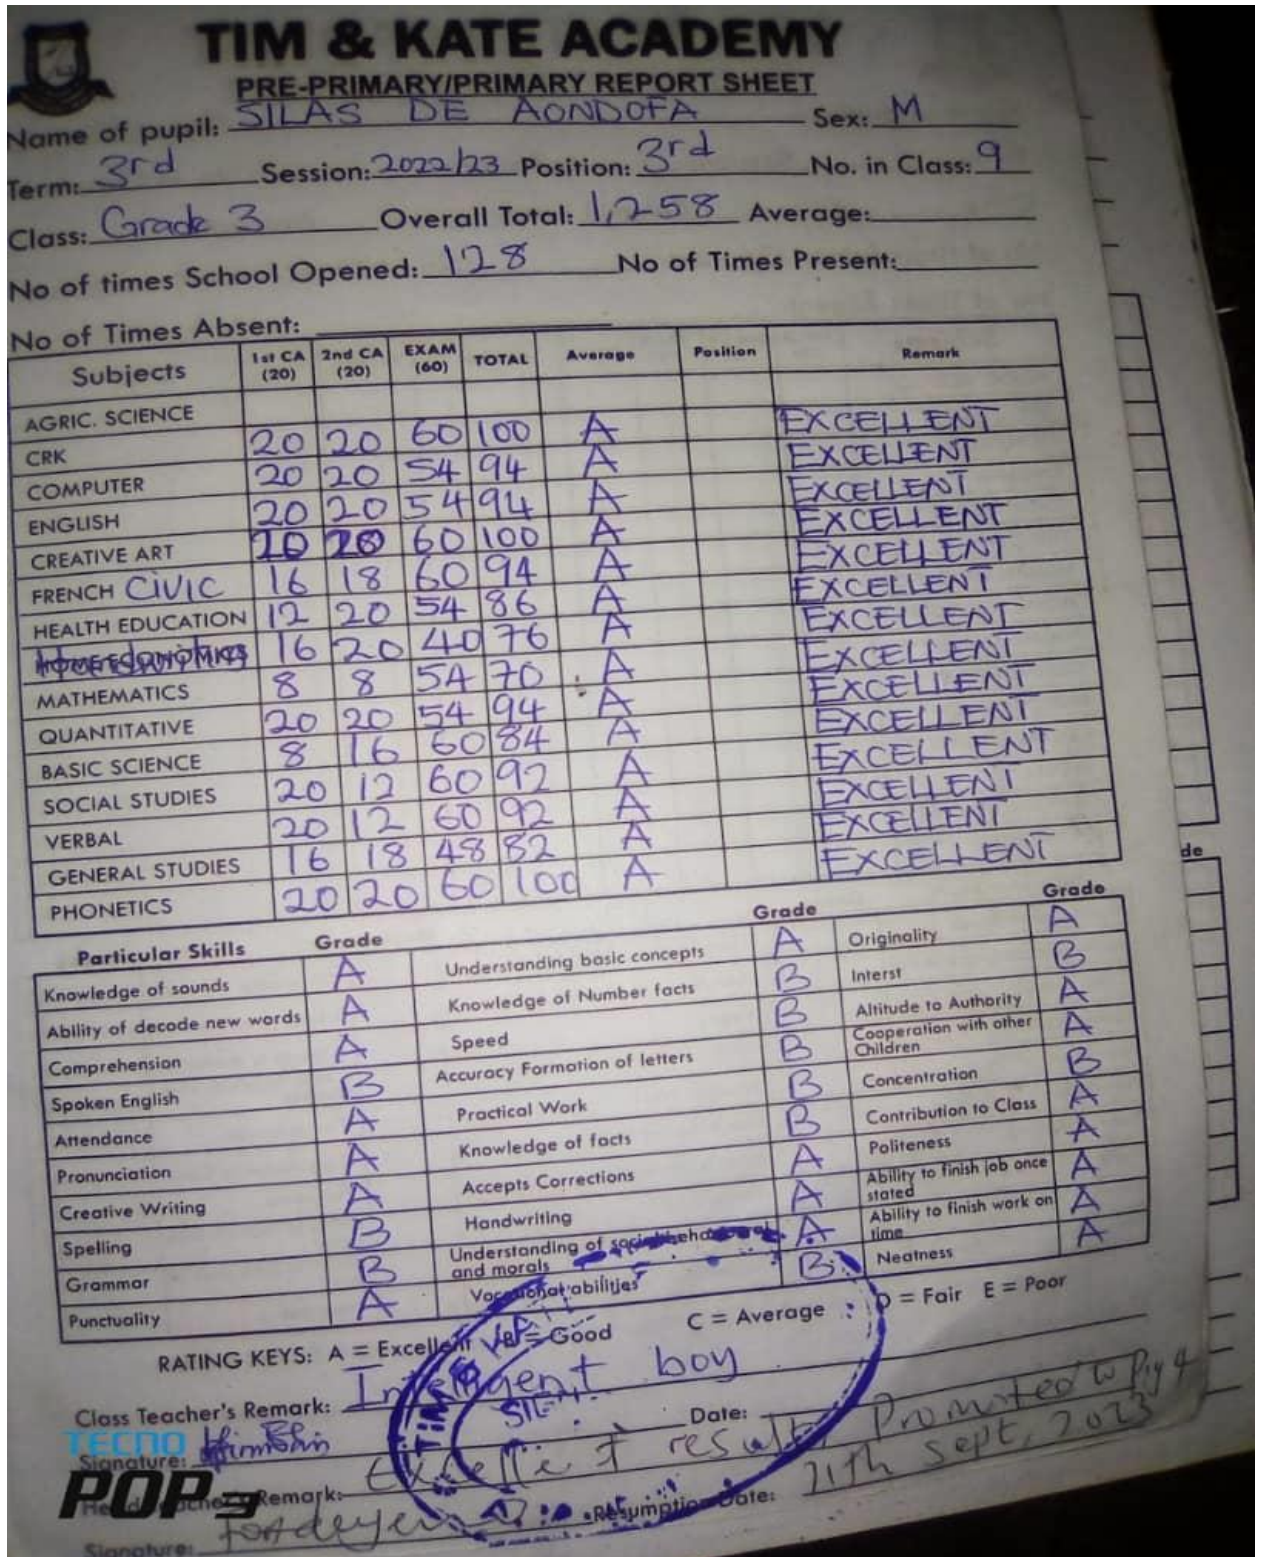 TIM & KATE ACADEMY
PRE-PRIMARY/PRIMARY REPORT SHEET
Name of pupil: SILAS DE AONDOFA Sex: M
Term: 3rd Session: 2022/23 Position: 3rd No. in Class: 9
Class: Grade 3 Overall Total: 1,258 Average:
No of times School Opened: 128 No of Times Present:
No of Times Absent:
Subjects 1st CA (20) 2nd CA (20) EXAM (60) TOTAL Average Position Remark
AGRIC. SCIENCE
CRK 20 20 60 100 A EXCELLENT
COMPUTER 20 20 54 94 A EXCELLENT
ENGLISH 20 20 54 94 A EXCELLENT
CREATIVE ART 20 20 60 100 A EXCELLENT
FRENCH CIVIC 16 18 60 94 A EXCELLENT
HEALTH EDUCATION 12 20 54 86 A EXCELLENT
16 20 40 76 A EXCELLENT
MATHEMATICS 8 8 54 70 A EXCELLENT
QUANTITATIVE 20 20 54 94 A EXCELLENT
BASIC SCIENCE 8 16 60 84 A EXCELLENT
SOCIAL STUDIES 20 12 60 92 A EXCELLENT
VERBAL 20 12 60 92 A EXCELLENT
GENERAL STUDIES 16 18 48 82 A EXCELLENT
PHONETICS 20 20 60 100 A EXCELLENT
Particular Skills Grade Grade Grade
Knowledge of sounds A Understanding basic concepts A Originality A
Ability of decode new words A Knowledge of Number facts B Interst B
Comprehension A Speed B Altitude to Authority A
Spoken English B Accuracy Formation of letters B Cooperation with other Children A
Attendance A Practical Work B Concentration B
Pronunciation A Knowledge of facts B Contribution to Class A
Creative Writing A Accepts Corrections A Politeness A
Spelling B Handwriting A Ability to finish job once stated A
Grammar B Understanding of social behavioural and morals A Ability to finish work on time A
Punctuality A Vocational abilities B Neatness A
RATING KEYS: A = Excellent B = Good C = Average D = Fair E = Poor
Class Teacher's Remark: Intelligent boy
Signature: Date:
Head Teacher's Remark: Excellent result, Promoted to Pry 4
Signature: Resumption Date: 11th Sept, 2023
TECNO
POP 3
de